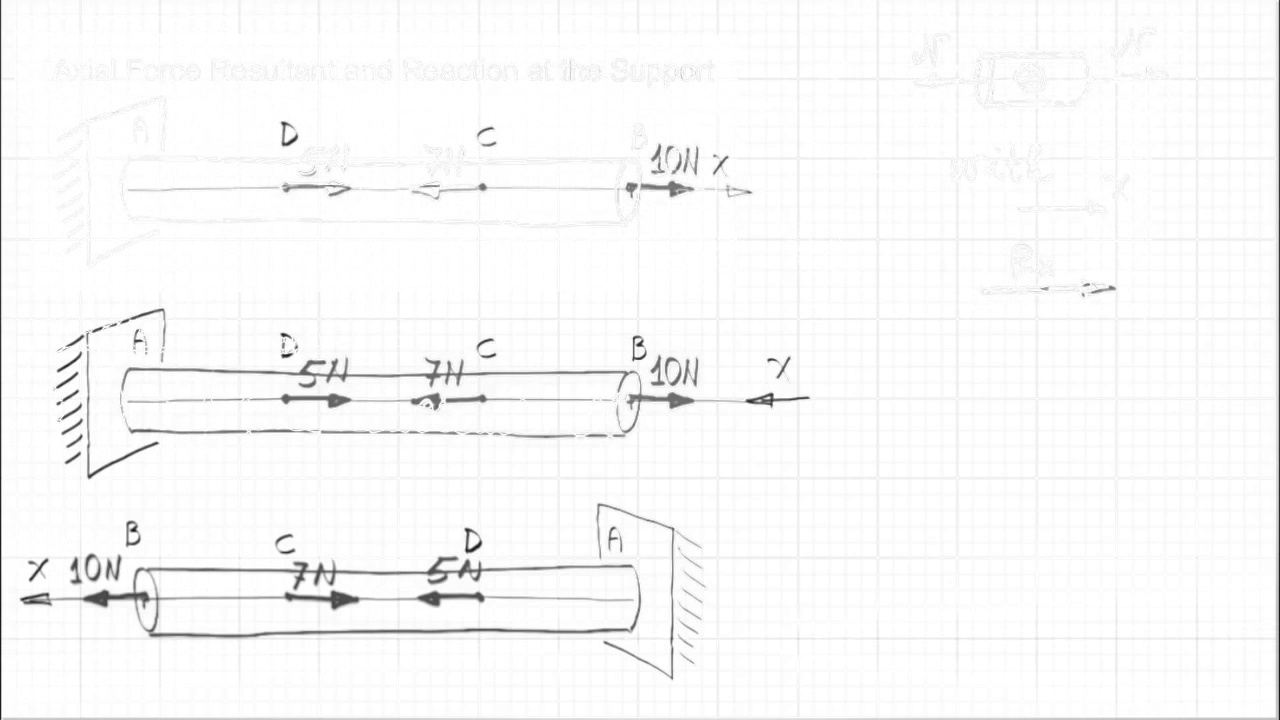 Axial Force Resultant and Reaction at the Support
N N
A D 5N 7N C B 10N X
with
X
Rx
A D 5N 7N C B 10N X
X 10N B C 7N 5N D A